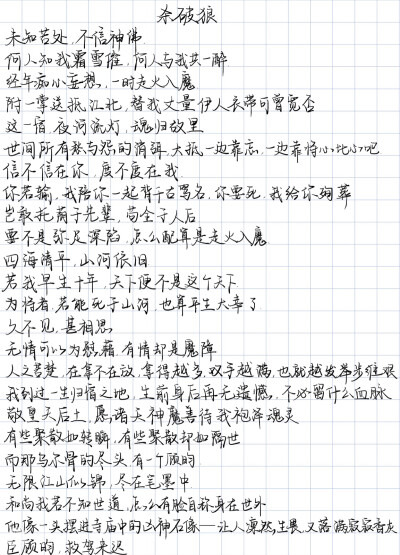 杀破狼
未知苦处,不信神佛
何人知我霜雪催,何人与我共一醉
经年痴心妄想,一时走火入魔
附一掌送抵江北,替我丈量伊人衣带可曾宽否
这一宿,夜河流灯,魂归故里
世间所有愁与怨的消弭,大抵一边靠忘,一边靠将心比心吧
信不信在你,度不度在我
你若输,我陪你一起背千古骂名,你要死,我给你殉葬
岂敢托荫于先辈,苟全于人后
要不是弥足深陷,怎么配算是走火入魔
四海清平,山河依旧
若我早生十年,天下便不是这个天下
为将者,若能死于山河,也算平生大幸了
久不见,甚相思
无情可以为慰藉,有情却是魔障
人之苦楚,在拿不在放,拿得越多,双手越满,也就越发举步维艰
我到过一生归宿之地,生前身后再无遗憾,不必留什么血脉
敬皇天后土,愿诸天神魔善待我袍泽魂灵
有些聚散如转瞬,有些聚散却如隔世
而那乌尔骨的尽头,有一个顾昀
无限江山似锦,尽在笔墨中
和尚我若不知世道,怎么有脸自称身在世外
他像一头摆进寺庙中的凶神石像——让人凛然生畏,又落满寂寂香灰
臣顾昀,救驾来迟